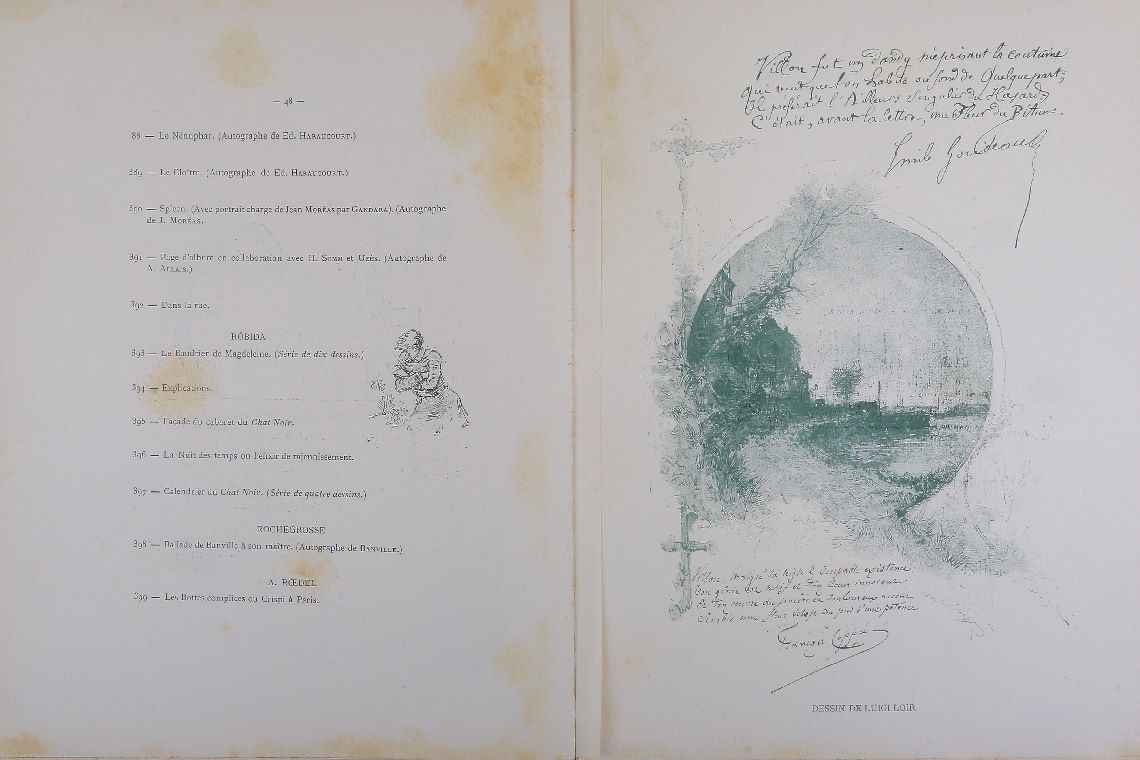 — 48 —
88 — Le Nénuphar. (Autographe de Ed. HARAUCOURT.)
389 — Le Cloître. (Autographe de Ed. HARAUCOURT.)
390 — Spleen. (Avec portrait charge de Jean MORÉAS par GANDARA). (Autographe
de J. MORÉAS.
391 — Page d'album en collaboration avec H. SOMM et UZÈS. (Autographe de
A. ALLAIS.)
392 — Dans la rue.
ROBIDA
393 — Le Baudrier de Magdeleine. (Série de dix dessins.)
394 — Explications.
395 — Façade du cabaret du Chat Noir.
396 — La Nuit des temps ou l'élixir de rajeunissement.
397 — Calendrier du Chat Noir. (Série de quatre dessins.)
ROCHEGROSSE
398 — Ballade de Banville à son maître. (Autographe de BANVILLE.)
A. RŒDEL
399 — Les Bottes complices ou Crispi à Paris.
Villon fut un dandy méprisant la coutume
Qui veut que l'on habite au fond de Quelque part;
Il préférait l'Ailleurs singulier du Hasard,
C'était, avant la lettre, une Fleur du Bitume.
Emile Goudeau
Villon, malgré ta
Ton génie est
de ton œuvre
Semble une fleur au pied d'une potence
François Coppée
DESSIN DE LUIGI LOIR